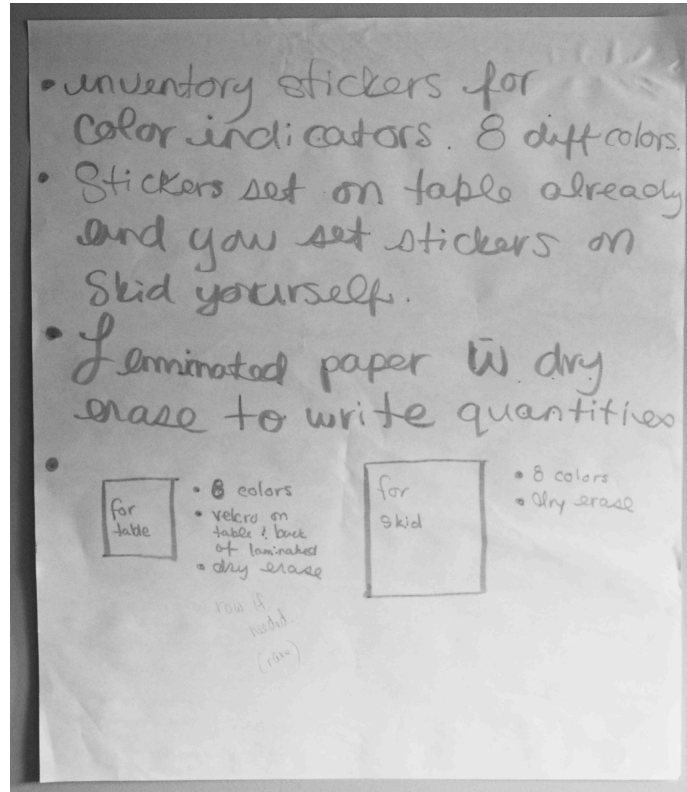 • inventory stickers for
color indicators. 8 diff colors.
• Stickers set on table already
and you set stickers on
Skid yourself.
• Laminated paper w̅ dry
erase to write quantities
•
for
table
• 8 colors
• velcro on
table & back
of laminated
• dry erase
for
skid
• 8 colors
• dry erase
row if
needed.